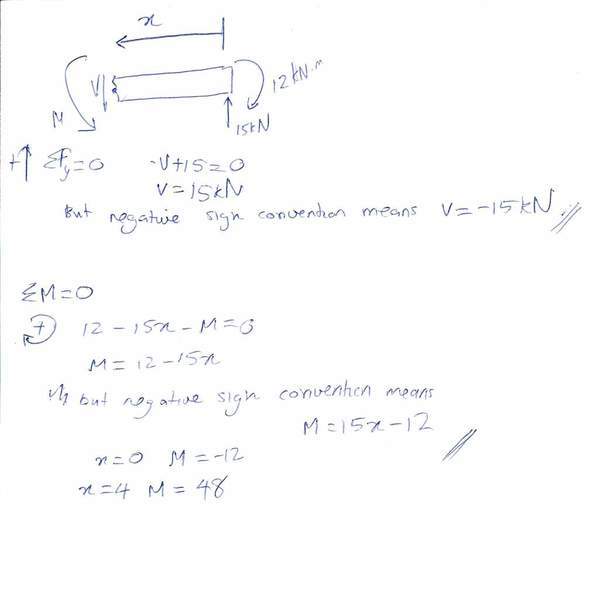 x
V
M
12 kN.m
15kN
+↑ ΣFy=0 -V+15=0
V=15kN
But negative sign convention means V=-15kN.
ΣM=0
+ 12-15x-M=0
M=12-15x
but negative sign convention means
M=15x-12
x=0 M=-12
x=4 M=48